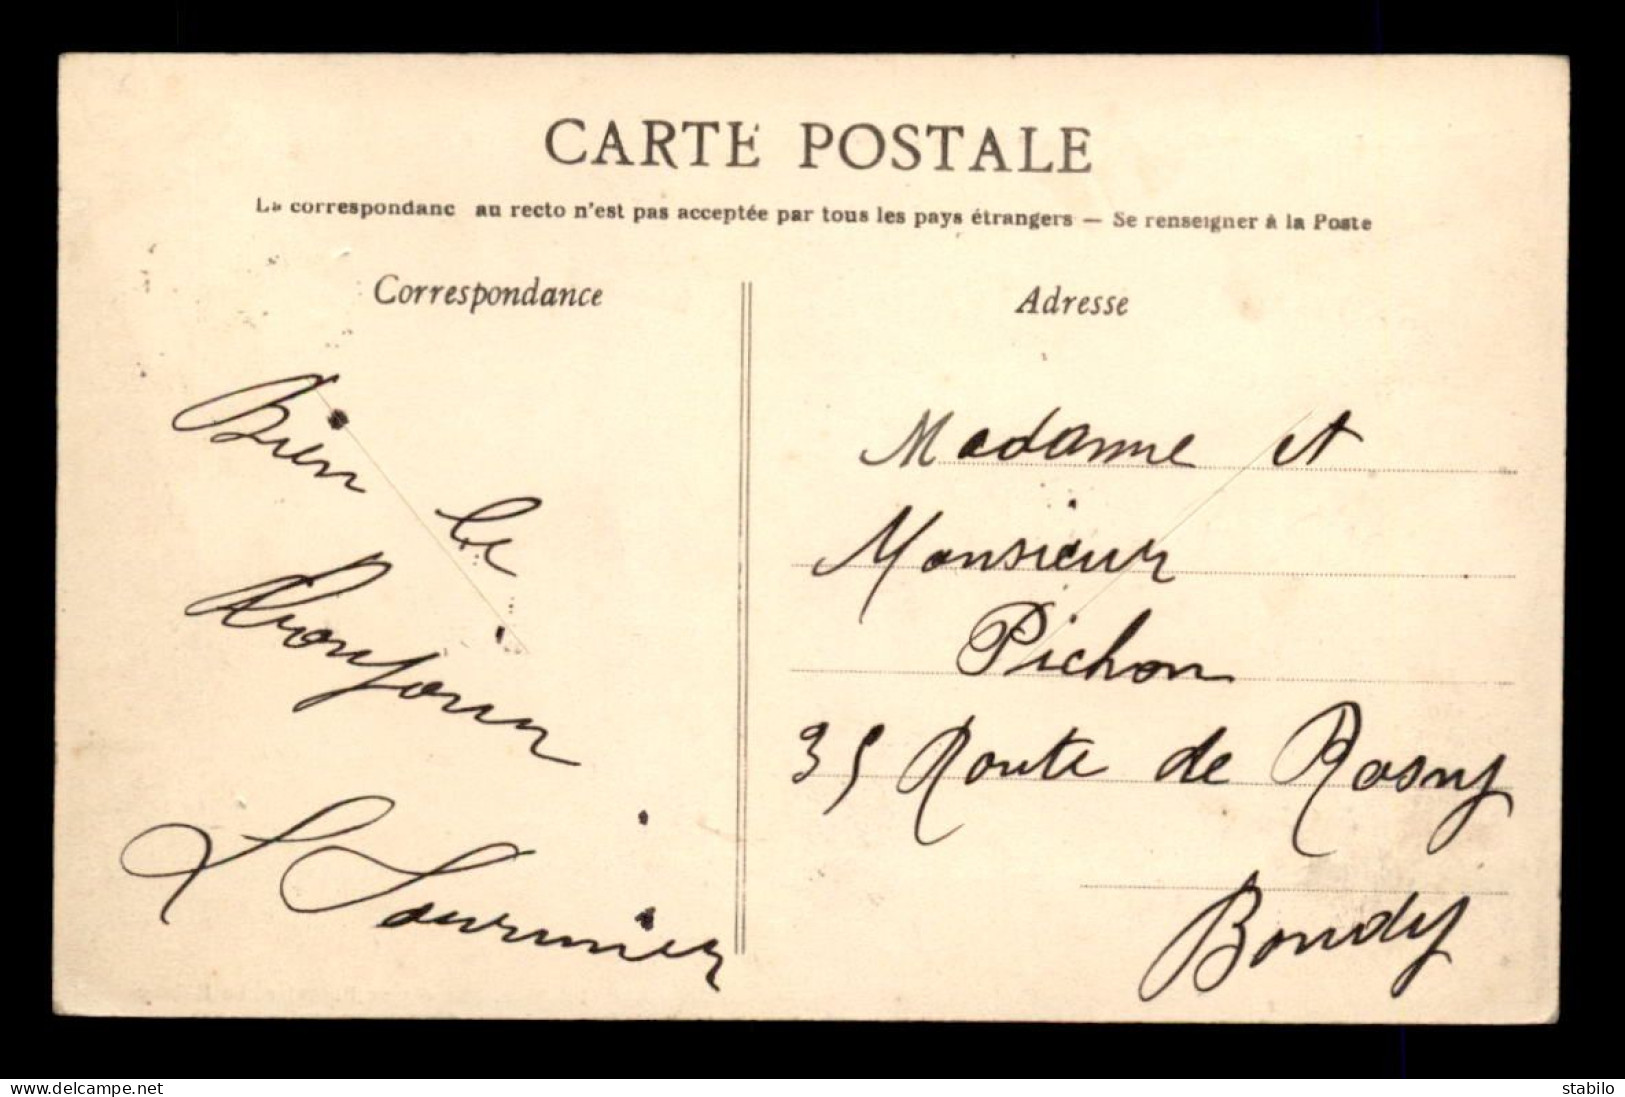 CARTE POSTALE
La correspondanc au recto n'est pas acceptée par tous les pays étrangers — Se renseigner à la Poste
Correspondance
Bien le
Bonjour
Adresse
Madame et
Monsieur
Pichon
35 Route de Rosny
Bondy
www.delcampe.net
stabilo